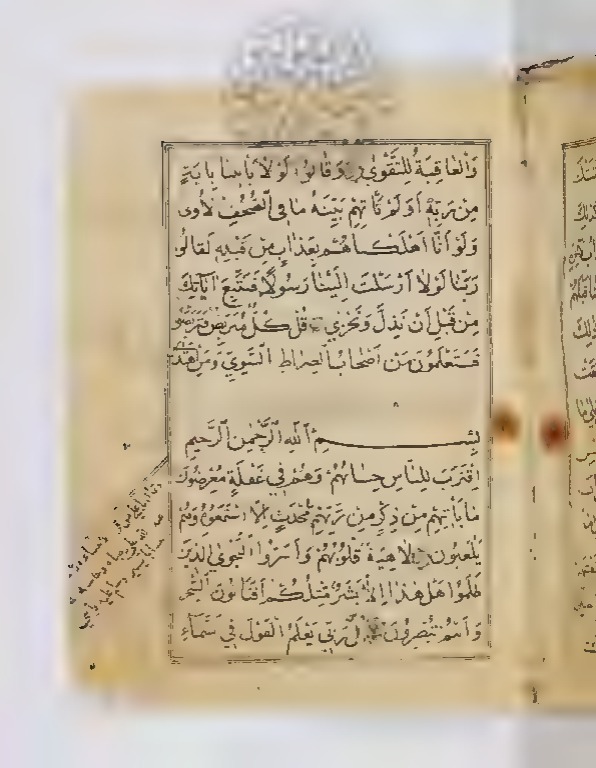 وَالْعَاقِبَةُ لِلتَّقْوٰى وَقَالُوا لَوْلَا يَأْتِينَا بِآيَةٍ
مِنْ رَبِّهِ أَوَلَمْ تَأْتِهِمْ بَيِّنَةُ مَا فِي الصُّحُفِ الْأُولٰى
وَلَوْ أَنَّا أَهْلَكْنَاهُمْ بِعَذَابٍ مِنْ قَبْلِهِ لَقَالُوا
رَبَّنَا لَوْلَا أَرْسَلْتَ إِلَيْنَا رَسُولًا فَنَتَّبِعَ آيَاتِكَ
مِنْ قَبْلِ أَنْ نَذِلَّ وَنَخْزٰى قُلْ كُلٌّ مُتَرَبِّصٌ فَتَرَبَّصُوا
فَسَتَعْلَمُونَ مَنْ أَصْحَابُ الصِّرَاطِ السَّوِيِّ وَمَنِ اهْتَدٰى
بِسْمِ اللهِ الرَّحْمٰنِ الرَّحِيمِ
اِقْتَرَبَ لِلنَّاسِ حِسَابُهُمْ وَهُمْ فِي غَفْلَةٍ مُعْرِضُونَ
مَا يَأْتِيهِمْ مِنْ ذِكْرٍ مِنْ رَبِّهِمْ مُحْدَثٍ إِلَّا اسْتَمَعُوهُ وَهُمْ
يَلْعَبُونَ لَاهِيَةً قُلُوبُهُمْ وَأَسَرُّوا النَّجْوَى الَّذِينَ
ظَلَمُوا هَلْ هٰذَا إِلَّا بَشَرٌ مِثْلُكُمْ أَفَتَأْتُونَ السِّحْرَ
وَأَنْتُمْ تُبْصِرُونَ قُلْ رَبِّي يَعْلَمُ الْقَوْلَ فِي السَّمَاءِ